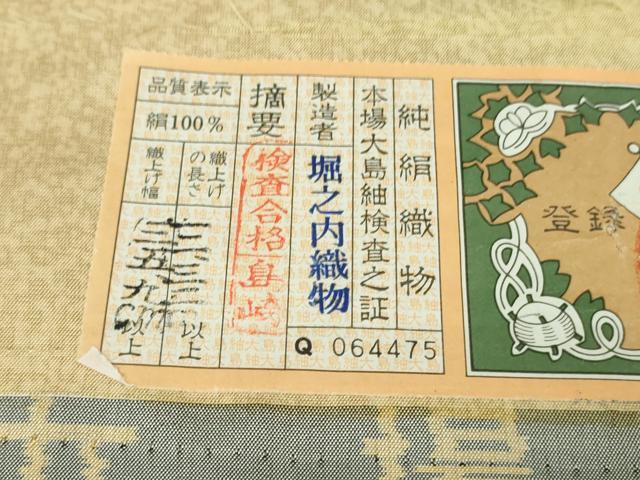 純絹織物
本場大島紬検査之証
製造者
堀之内織物
Q 064475
摘要
検査合格
品質表示
絹100%
織上げの長さ
以上
織上げ幅
以上
登録